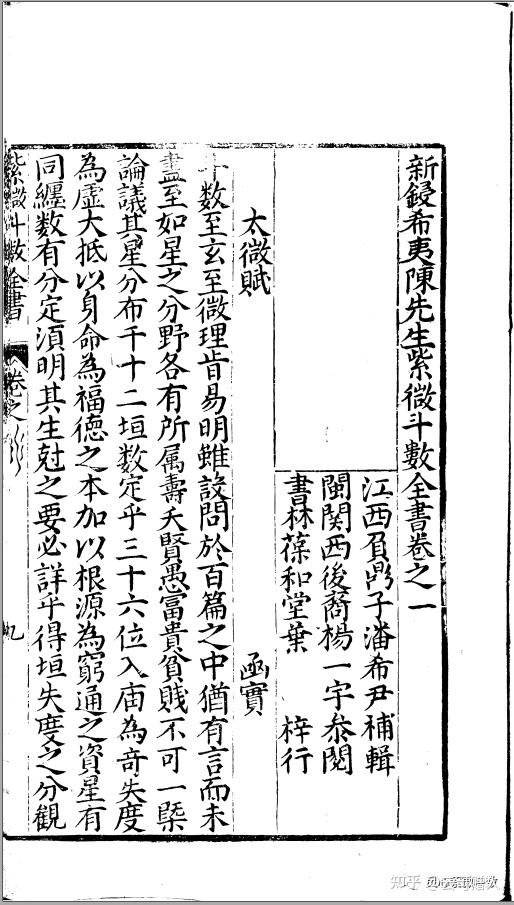 新鋟希夷陳先生紫微斗數全書卷之一
江西負鼎子潘希尹補輯
閩関西後裔楊一宇叅閱
書林葆和堂葉　梓行
太微賦　函實
斗数至玄至微理肯易明雖設問於百篇之中猶有言而未
盡至如星之分野各有所属壽夭賢愚富貴貧賤不可一槩
論議其星分布千十二垣数定乎三十六位入庙為奇失度
為虛大抵以身命為福德之本加以根源為窮通之資星有
同纏数有分定須明其生尅之要必詳乎得垣失度之分觀
紫微斗數全書
卷之
知乎